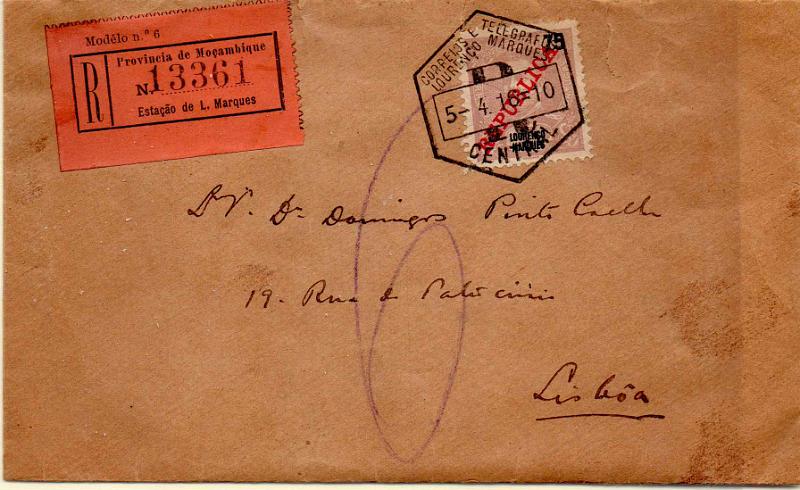 Modêlo n.º 6
Provincia de Moçambique
R
N. 13361
Estação de L. Marques
CORREIOS E TELEGRAFOS
LOURENÇO MARQUES
5- 4.16-10
CENTRAL
75
REPUBLICA
LOURENÇO
MARQUES
Dr. Domingos Pinto Coelho
19. Rua do Patrocinio
Lisbôa